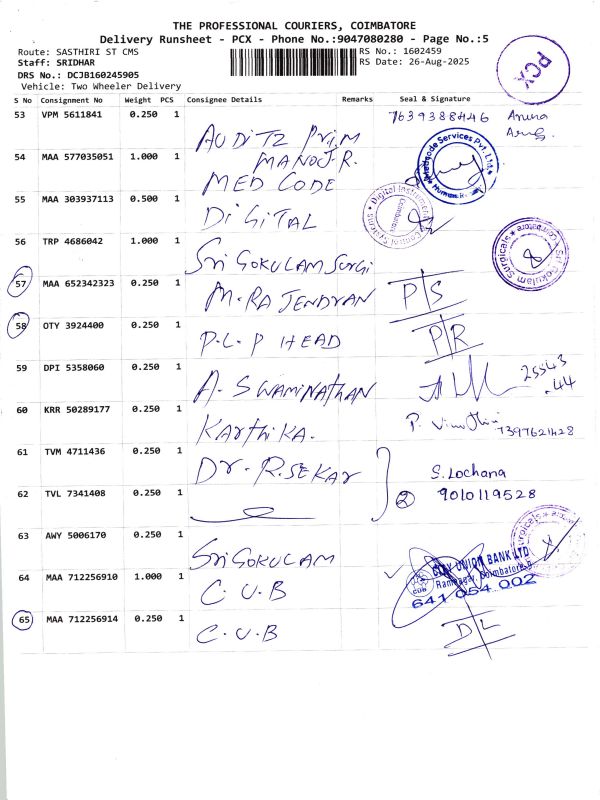 THE PROFESSIONAL COURIERS, COIMBATORE
Delivery Runsheet - PCX - Phone No.:9047080280 - Page No.:5
Route: SASTHIRI ST CMS
RS No.: 1602459
Staff: SRIDHAR
RS Date: 26-Aug-2025
DRS No.: DCJB160245905
Vehicle: Two Wheeler Delivery
PCX
S No Consignment No Weight PCS Consignee Details Remarks Seal & Signature
53 VPM 5611841 0.250 1 7639388446 Aruna
AUDITZ Prism
MANOJ.R.
54 MAA 577035051 1.000 1 MED CODE
Medcode Services Pvt. Ltd.
55 MAA 303937113 0.500 1 DiGiTAL
Digital Instruments Control Systems
Coimbatore
56 TRP 4686042 1.000 1 Sri GOKULAM Surgi
Sri Gokulam Surgicals Coimbatore
57 MAA 652342323 0.250 1 M. RAJENDRAN P|S
58 OTY 3924400 0.250 1 P.L.P HEAD P|R
59 DPI 5358060 0.250 1 A. SWAMINATHAN 25543
.44
60 KRR 50289177 0.250 1 KARTHIKA. P. Vinothini
7397621428
61 TVM 4711436 0.250 1 Dr. R.SEKAR S. Lochana
62 TVL 7341408 0.250 1 2 9010119528
63 AWY 5006170 0.250 1 Sri GOKULAM
Surgicals
64 MAA 712256910 1.000 1 C.U.B
CITY UNION BANK LTD
Ramnagar, Coimbatore
641 054 002
CUB
65 MAA 712256914 0.250 1 C.U.B D|L